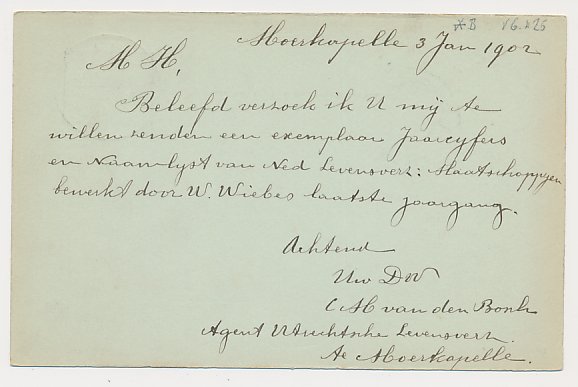 Moerkapelle 3 Jan 1902
M H,
Beleefd verzoek ik U mij te
willen zenden een exemplaar Jaarcyfers
en Naamlyst van Ned Levensverz: Maatschappyen
bewerkt door W. Wiebes laatste jaargang.
Achtend
Uw Dw
C M van den Bosch
Agent Utrechtsche Levensverz.
te Moerkapelle.